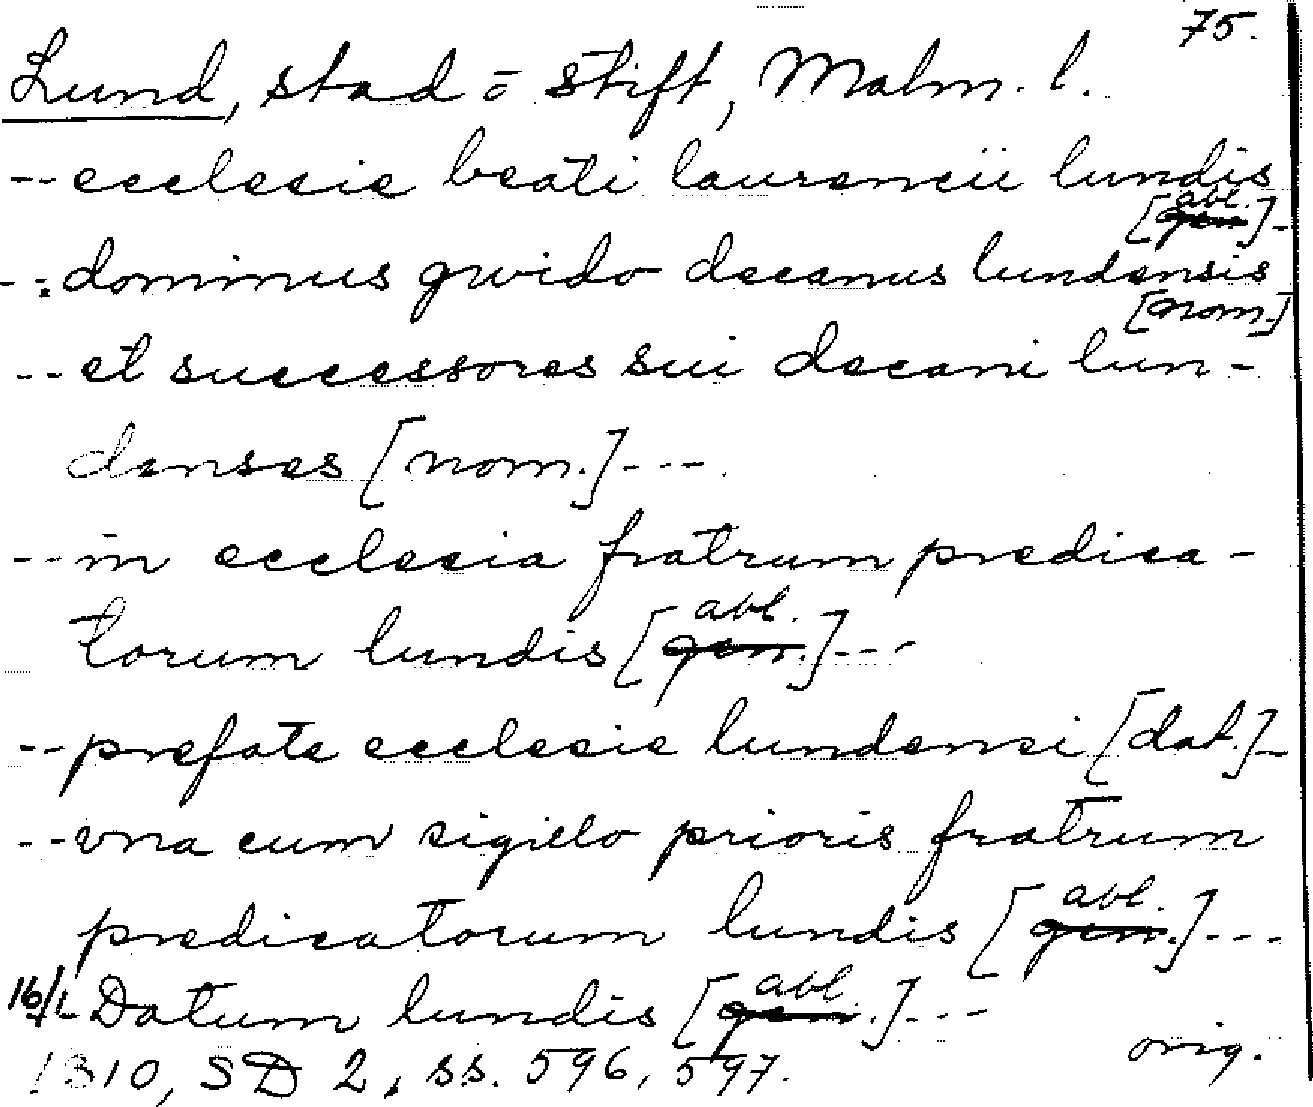 75.
Lund, stad o stift, Malm. l.
-- ecclesie beati laurencii lundis
[gen abl.]-
--dominus gwido decanus lundensis
[nom.]
-- et successores sui decani lun-
denses [nom.]---.
-- in ecclesia fratrum predica-
torum lundis [gen. abl.]---
-- prefate ecclesie lundensi [dat.]-
-- vna cum sigillo prioris fratrum
predicatorum lundis [gen. abl.]---
Datum lundis [gen. abl.]---
1310, SD 2, ss. 596, 597.
orig.